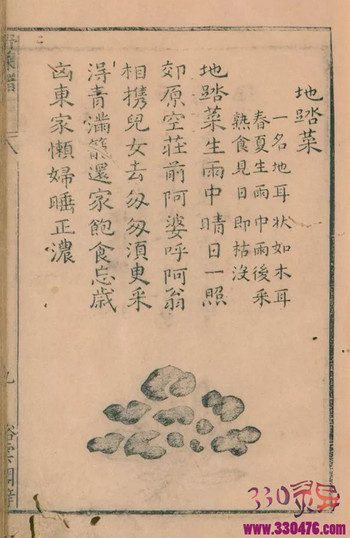 地踏菜
一名地耳狀如木耳
春夏生雨中雨後采
熟食見日即枯沒
地踏菜生雨中晴日一照
郊原空莊前阿婆呼阿翁
相携兒女去匆匆須臾采
得青滿籠還家飽食忘歲
凶東家懶婦睡正濃
330灵异
www.330476.com